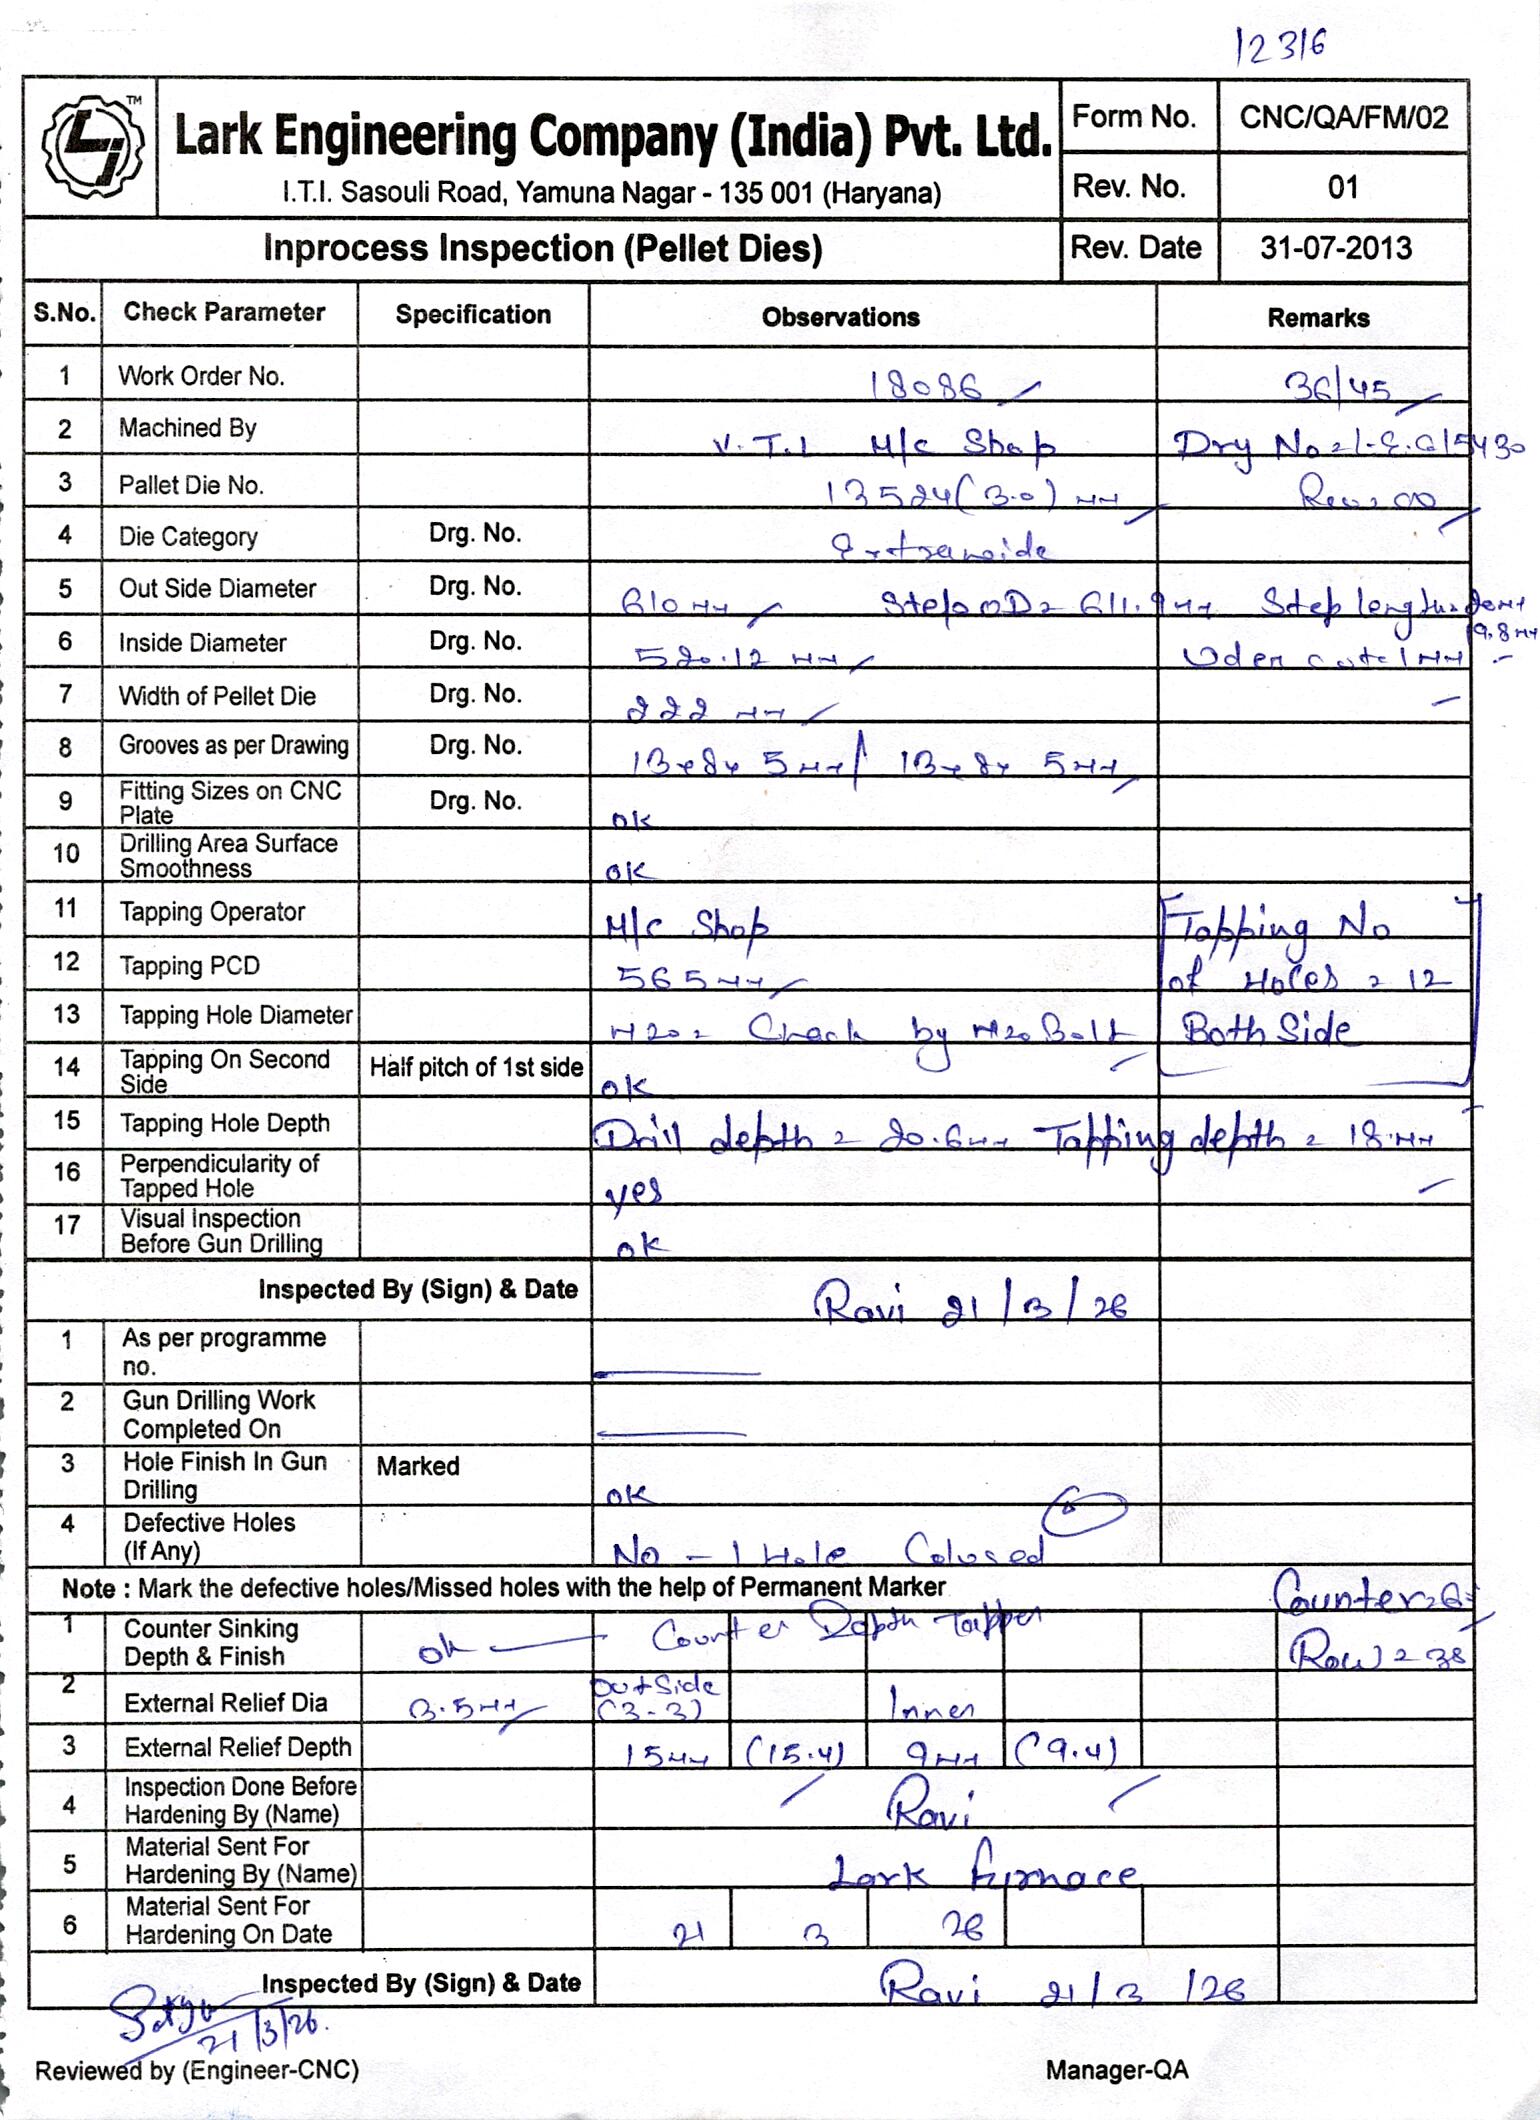 12316
TM
Lark Engineering Company (India) Pvt. Ltd.
I.T.I. Sasouli Road, Yamuna Nagar - 135 001 (Haryana)
Form No. CNC/QA/FM/02
Rev. No. 01
Inprocess Inspection (Pellet Dies) Rev. Date 31-07-2013
S.No. Check Parameter Specification Observations Remarks
1 Work Order No. 18086 36/45
2 Machined By V.T.L M/c Shop Drg No
3 Pallet Die No. 13524(3.0) mm Rev=00
4 Die Category Drg. No. Extrawide
5 Out Side Diameter Drg. No. 610 mm Step OD= 611.9mm Step length=
19.8mm
6 Inside Diameter Drg. No. 520.12 mm 1mm
7 Width of Pellet Die Drg. No. 222 mm
8 Grooves as per Drawing Drg. No. 13x8x5mm/ 13x8x5mm
9 Fitting Sizes on CNC Plate Drg. No. ok
10 Drilling Area Surface Smoothness ok
11 Tapping Operator M/c Shop Tapping No
12 Tapping PCD 565mm of Holes = 12
13 Tapping Hole Diameter M20= Check by M20 Bolt Both Side
14 Tapping On Second Side Half pitch of 1st side ok
15 Tapping Hole Depth Drill depth = 20.6mm Tapping depth = 18mm
16 Perpendicularity of Tapped Hole yes
17 Visual Inspection Before Gun Drilling ok
Inspected By (Sign) & Date Ravi 21/3/26
1 As per programme no.
2 Gun Drilling Work Completed On
3 Hole Finish In Gun Drilling Marked ok
4 Defective Holes (If Any) No - 1 Hole Colused
Note : Mark the defective holes/Missed holes with the help of Permanent Marker
1 Counter Sinking Depth & Finish ok Counter Depth Tapper Counter
Row = 38
2 External Relief Dia 3.5mm outside (3-3) Inner
3 External Relief Depth 15mm (15.4) 9mm (9.4)
4 Inspection Done Before Hardening By (Name) Ravi
5 Material Sent For Hardening By (Name) Lark Furnace
6 Material Sent For Hardening On Date 21 3 26
Inspected By (Sign) & Date Ravi 21/3/26
21/3/26.
Reviewed by (Engineer-CNC) Manager-QA